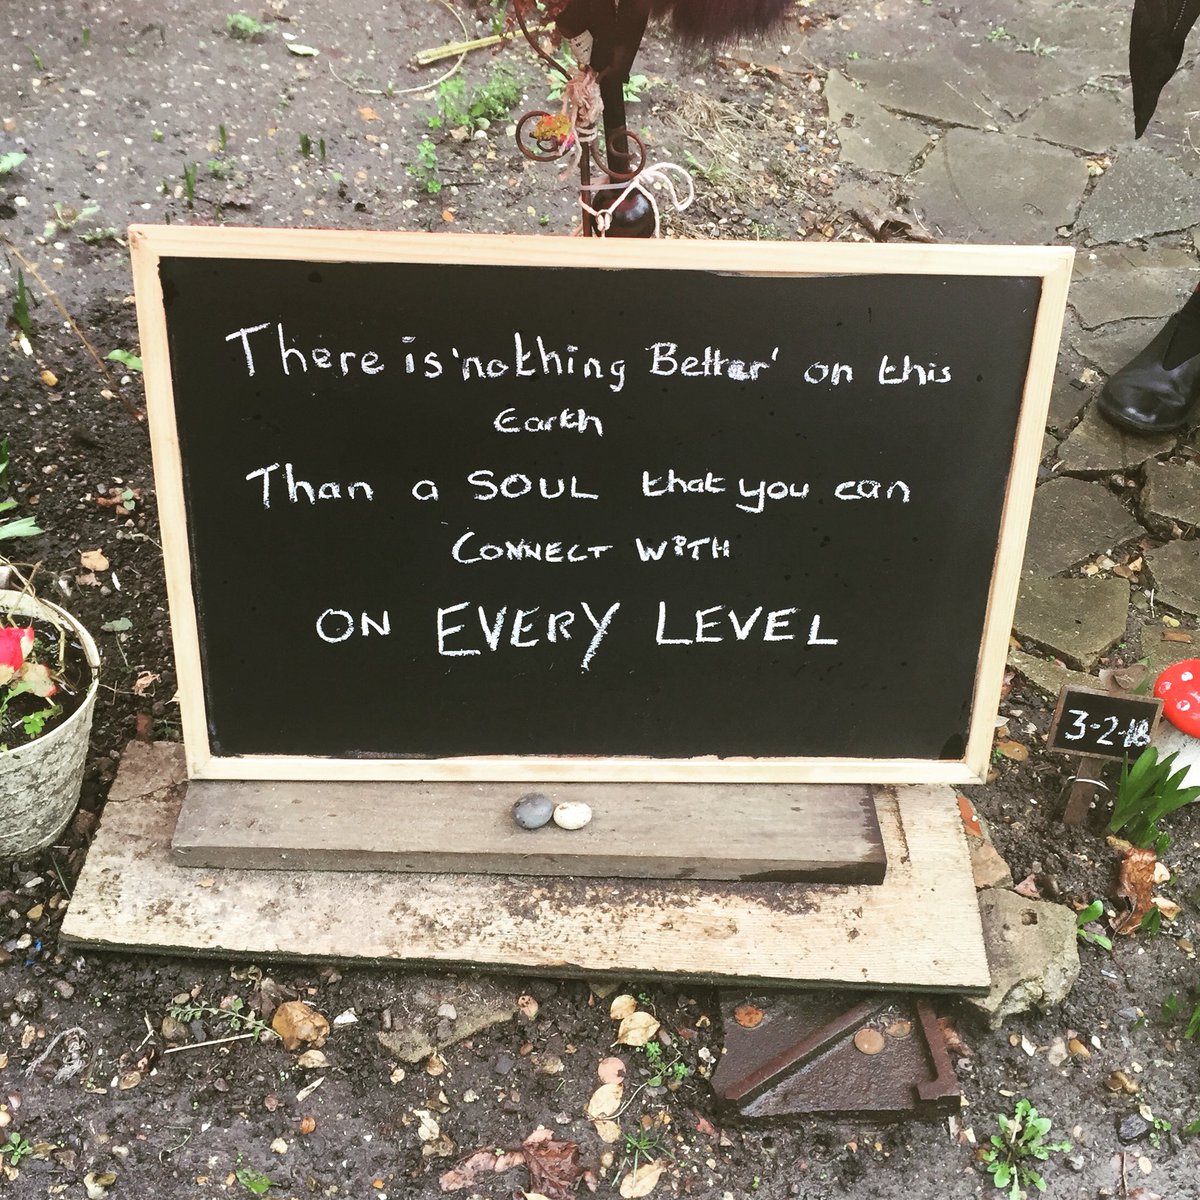 There is 'nothing Better' on this
Earth
Than a SOUL that you can
CONNECT WiTH
ON EVERY LEVEL
3-2-18